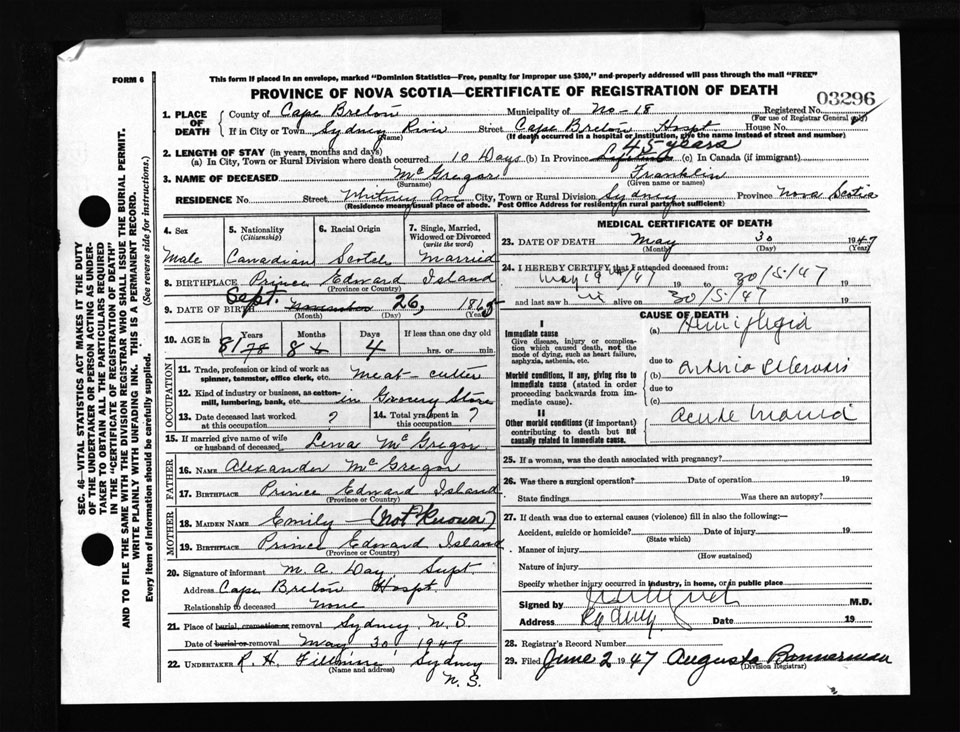 FORM 6
This form if placed in an envelope, marked "Dominion Statistics—Free, penalty for improper use $300," and properly addressed will pass through the mail "FREE"
PROVINCE OF NOVA SCOTIA—CERTIFICATE OF REGISTRATION OF DEATH
03296
1. PLACE OF DEATH
County of Cape Breton Municipality of No-18 Registered No.
(For use of Registrar General only)
If in City or Town Sydney River Street Cape Breton Hospt. House No.
(Name) (If death occurred in a hospital or institution, give the name instead of street and number)
2. LENGTH OF STAY (in years, months and days) 45 years
(a) In City, Town or Rural Division where death occurred 10 Days (b) In Province Lifetime (c) In Canada (if immigrant)
3. NAME OF DECEASED McGregor Franklin
(Surname) (Given name or names)
RESIDENCE No. Street Whitney Av. City, Town or Rural Division Sydney Province Nova Scotia
(Residence means usual place of abode. Post Office Address for residents in rural parts not sufficient)
4. Sex Male
5. Nationality (Citizenship) Canadian
6. Racial Origin Scotch
7. Single, Married, Widowed or Divorced (write the word) Married
8. BIRTHPLACE Prince Edward Island
(Province or Country)
9. DATE OF BIRTH Sept. November 26, 1865
(Month) (Day) (Year)
10. AGE in Years Months Days If less than one day old
81 78 8 6 4 hrs. or min.
OCCUPATION
11. Trade, profession or kind of work as spinner, teamster, office clerk, etc. Meat-cutter
12. Kind of industry or business, as cotton-mill, lumbering, bank, etc. in Grocery Store
13. Date deceased last worked at this occupation ?
14. Total yrs. spent in this occupation ?
15. If married give name of wife or husband of deceased Lena McGregor
FATHER
16. NAME Alexander McGregor
17. BIRTHPLACE Prince Edward Island
(Province or Country)
MOTHER
18. MAIDEN NAME Emily (not Known)
19. BIRTHPLACE Prince Edward Island
(Province or Country)
20. Signature of informant M. A. Day, Supt.
Address Cape Breton Hospt.
Relationship to deceased None
21. Place of burial, cremation or removal Sydney N.S.
Date of burial or removal May 30 1947
22. UNDERTAKER R. H. Sydney N.S.
(Name and address)
MEDICAL CERTIFICATE OF DEATH
23. DATE OF DEATH May 30 1947
(Month) (Day) (Year)
24. I HEREBY CERTIFY that I attended deceased from:
May 19th/47 19 to 30/5/47 19
and last saw h im alive on 30/5/47 19
CAUSE OF DEATH
I
Immediate cause
Give disease, injury or complication which caused death, not the mode of dying, such as heart failure, asphyxia, asthenia, etc.
(a) Hemiplegia
due to
Morbid conditions, if any, giving rise to immediate cause (stated in order proceeding backwards from immediate cause).
(b) Arterio Sclerosis
due to
(c)
II
Other morbid conditions (if important) contributing to death but not causally related to immediate cause.
Acute Mania
25. If a woman, was the death associated with pregnancy?
26. Was there a surgical operation? Date of operation 19
State findings Was there an autopsy?
27. If death was due to external causes (violence) fill in also the following:—
Accident, suicide or homicide? Date of injury 19
(State which)
Manner of injury
(How sustained)
Nature of injury
Specify whether injury occurred in industry, in home, or in public place
Signed by M.D.
Address Date 19
28. Registrar's Record Number
29. Filed June 2 1947 Augusta Bannerman
(Division Registrar)
SEC. 46—VITAL STATISTICS ACT MAKES IT THE DUTY
OF THE UNDERTAKER OR PERSON ACTING AS UNDERTAKER TO OBTAIN ALL THE PARTICULARS REQUIRED
IN THE "CERTIFICATE OF REGISTRATION OF DEATH"
AND TO FILE THE SAME WITH THE DIVISION REGISTRAR WHO SHALL ISSUE THE BURIAL PERMIT.
WRITE PLAINLY WITH UNFADING INK. THIS IS A PERMANENT RECORD.
Every item of information should be carefully supplied. (See reverse side for instructions.)